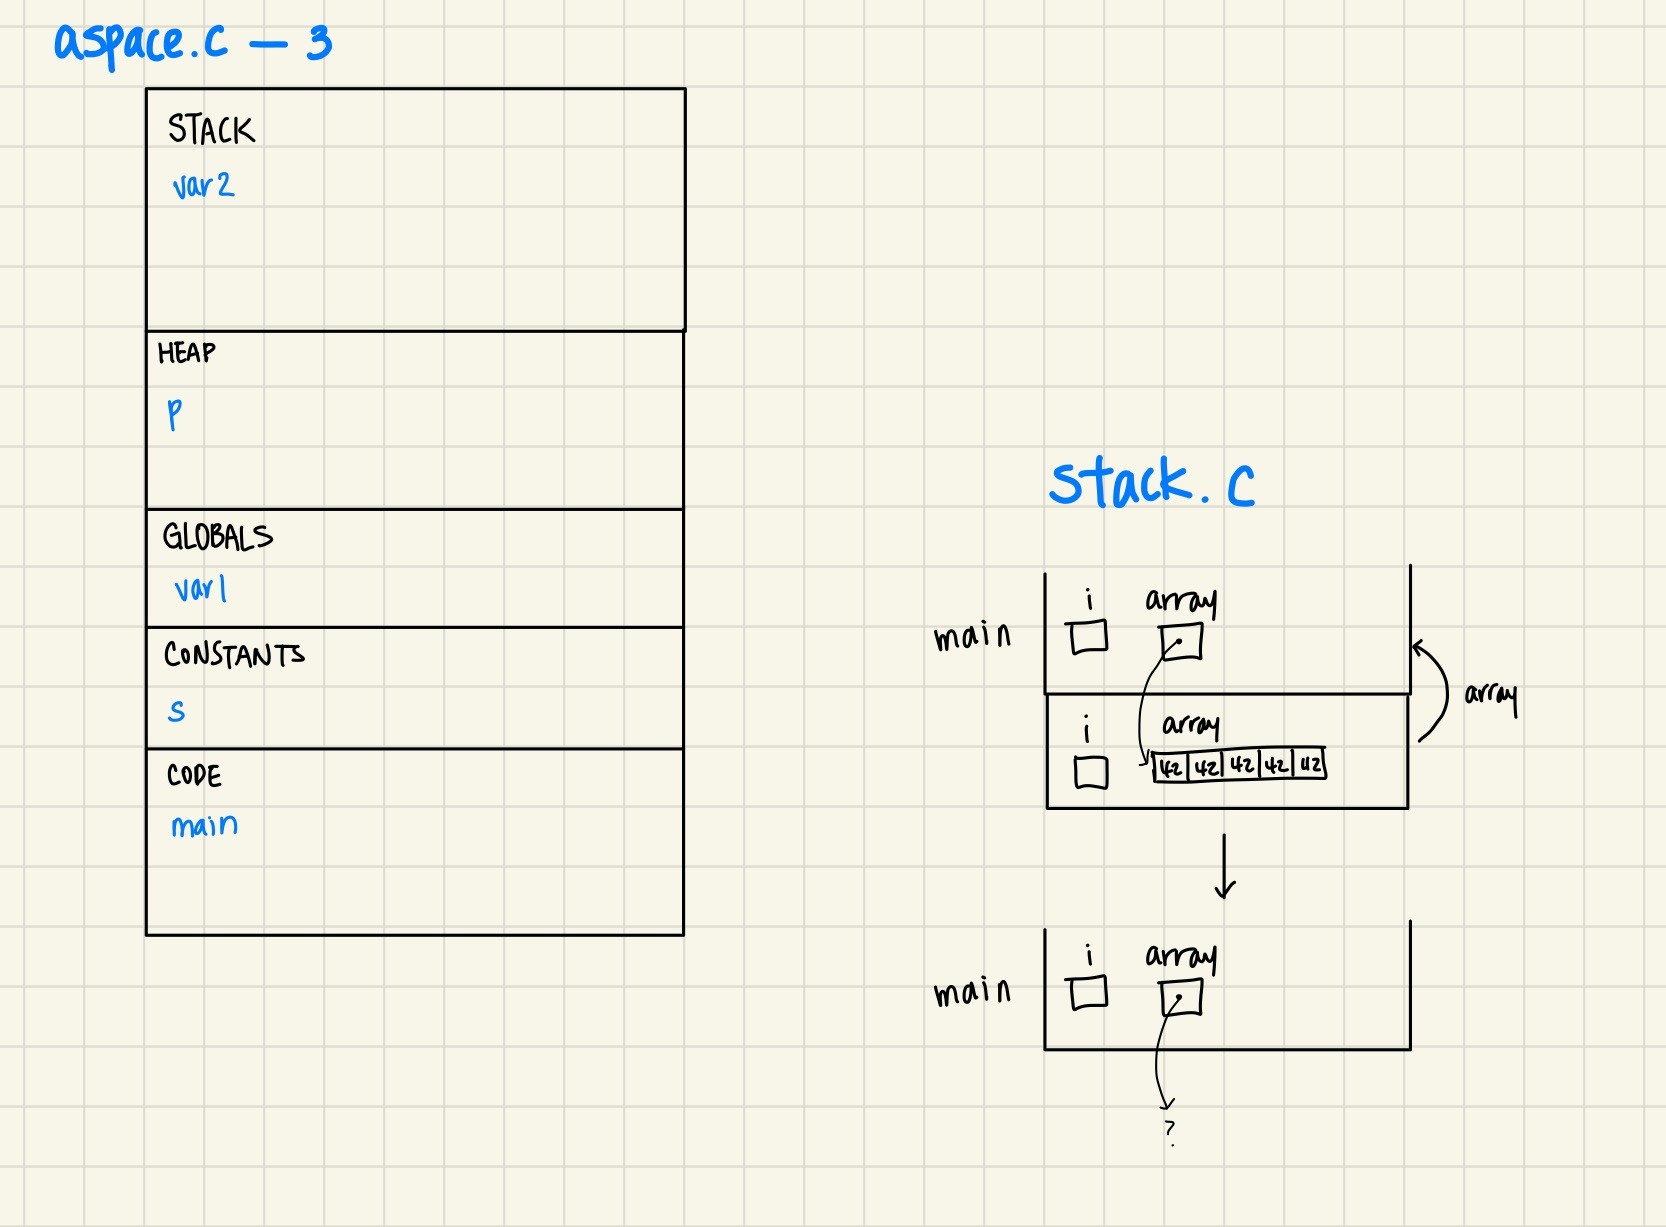 aspace.c — 3
STACK
var2
HEAP
p
GLOBALS
var1
CONSTANTS
s
CODE
main
stack.c
i array
main
array
i array
42 42 42 42 42
i array
main
?